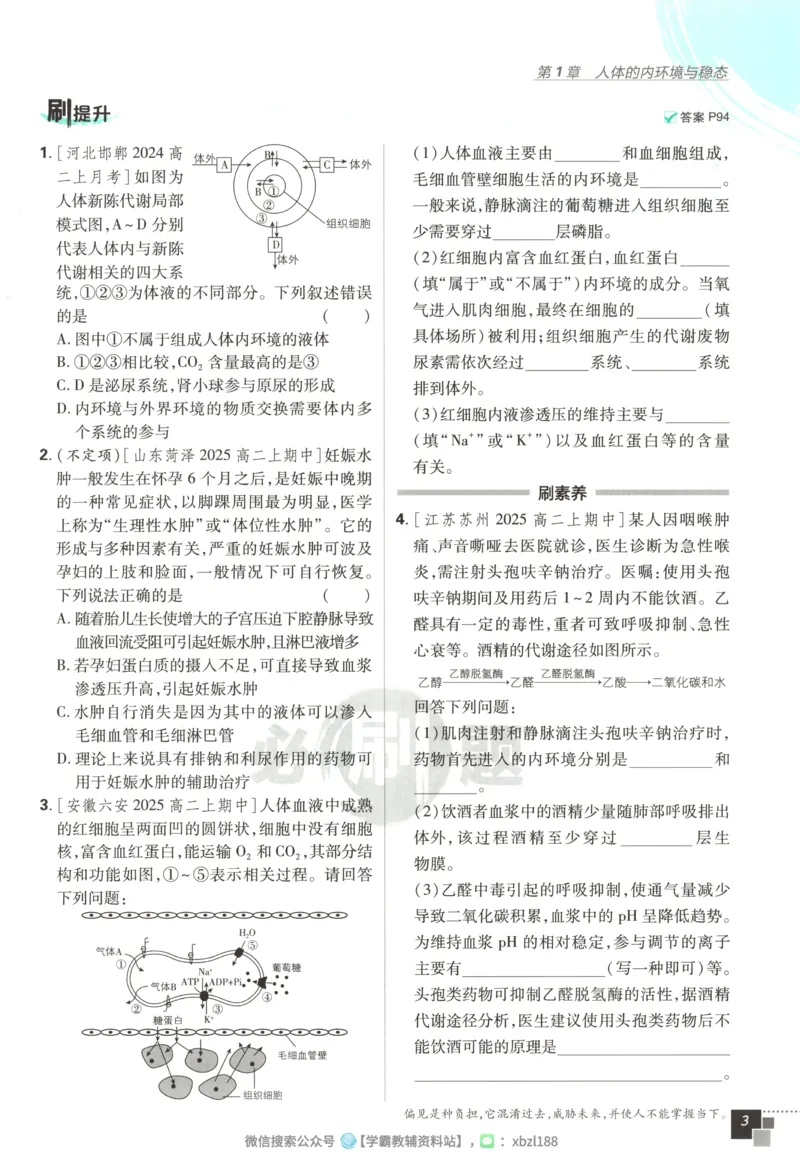 第1章 人体的内环境与稳态
刷提升
答案 P94
1. [河北邯郸 2024 高
二上月考]如图为
人体新陈代谢局部
模式图,A~D 分别
代表人体内与新陈
代谢相关的四大系
体外
A
B
C
体外
B
①
②
③
组织细胞
D
体外
统,①②③为体液的不同部分。下列叙述错误
的是 ( )
A. 图中①不属于组成人体内环境的液体
B. ①②③相比较,CO₂ 含量最高的是③
C. D 是泌尿系统,肾小球参与原尿的形成
D. 内环境与外界环境的物质交换需要体内多
个系统的参与
2. (不定项)[山东菏泽 2025 高二上期中]妊娠水
肿一般发生在怀孕 6 个月之后,是妊娠中晚期
的一种常见症状,以脚踝周围最为明显,医学
上称为“生理性水肿”或“体位性水肿”。它的
形成与多种因素有关,严重的妊娠水肿可波及
孕妇的上肢和脸面,一般情况下可自行恢复。
下列说法正确的是 ( )
A. 随着胎儿生长使增大的子宫压迫下腔静脉导致
血液回流受阻可引起妊娠水肿,且淋巴液增多
B. 若孕妇蛋白质的摄入不足,可直接导致血浆
渗透压升高,引起妊娠水肿
C. 水肿自行消失是因为其中的液体可以渗入
毛细血管和毛细淋巴管
D. 理论上来说具有排钠和利尿作用的药物可
用于妊娠水肿的辅助治疗
3. [安徽六安 2025 高二上期中]人体血液中成熟
的红细胞呈两面凹的圆饼状,细胞中没有细胞
核,富含血红蛋白,能运输 O₂ 和 CO₂,其部分结
构和功能如图,①~⑤表示相关过程。请回答
下列问题:
H₂O
⑤
气体A
①
Na⁺
葡萄糖
气体B
ATP
ADP+Pi
④
②
③
糖蛋白
K⁺
毛细血管壁
组织细胞
(1)人体血液主要由________和血细胞组成,
毛细血管壁细胞生活的内环境是__________。
一般来说,静脉滴注的葡萄糖进入组织细胞至
少需要穿过________层磷脂。
(2)红细胞内富含血红蛋白,血红蛋白______
(填“属于”或“不属于”)内环境的成分。当氧
气进入肌肉细胞,最终在细胞的________(填
具体场所)被利用;组织细胞产生的代谢废物
尿素需依次经过________系统、________系统
排到体外。
(3)红细胞内液渗透压的维持主要与________
(填“Na⁺”或“K⁺”)以及血红蛋白等的含量
有关。
刷素养
4. [江苏苏州 2025 高二上期中]某人因咽喉肿
痛、声音嘶哑去医院就诊,医生诊断为急性喉
炎,需注射头孢呋辛钠治疗。医嘱:使用头孢
呋辛钠期间及用药后 1~2 周内不能饮酒。乙
醛具有一定的毒性,重者可致呼吸抑制、急性
心衰等。酒精的代谢途径如图所示。
乙醇 乙醇脱氢酶→乙醛 乙醛脱氢酶→乙酸→二氧化碳和水
回答下列问题:
(1)肌肉注射和静脉滴注头孢呋辛钠治疗时,
药物首先进入的内环境分别是__________和
________。
(2)饮酒者血浆中的酒精少量随肺部呼吸排出
体外,该过程酒精至少穿过________层生
物膜。
(3)乙醛中毒引起的呼吸抑制,使通气量减少
导致二氧化碳积累,血浆中的 pH 呈降低趋势。
为维持血浆 pH 的相对稳定,参与调节的离子
主要有________________(写一种即可)等。
头孢类药物可抑制乙醛脱氢酶的活性,据酒精
代谢途径分析,医生建议使用头孢类药物后不
能饮酒可能的原理是____________________
____________________________________。
必刷题
偏见是种负担,它混淆过去,威胁未来,并使人不能掌握当下。
3
微信搜索公众号【学霸教辅资料站】, : xbzl188